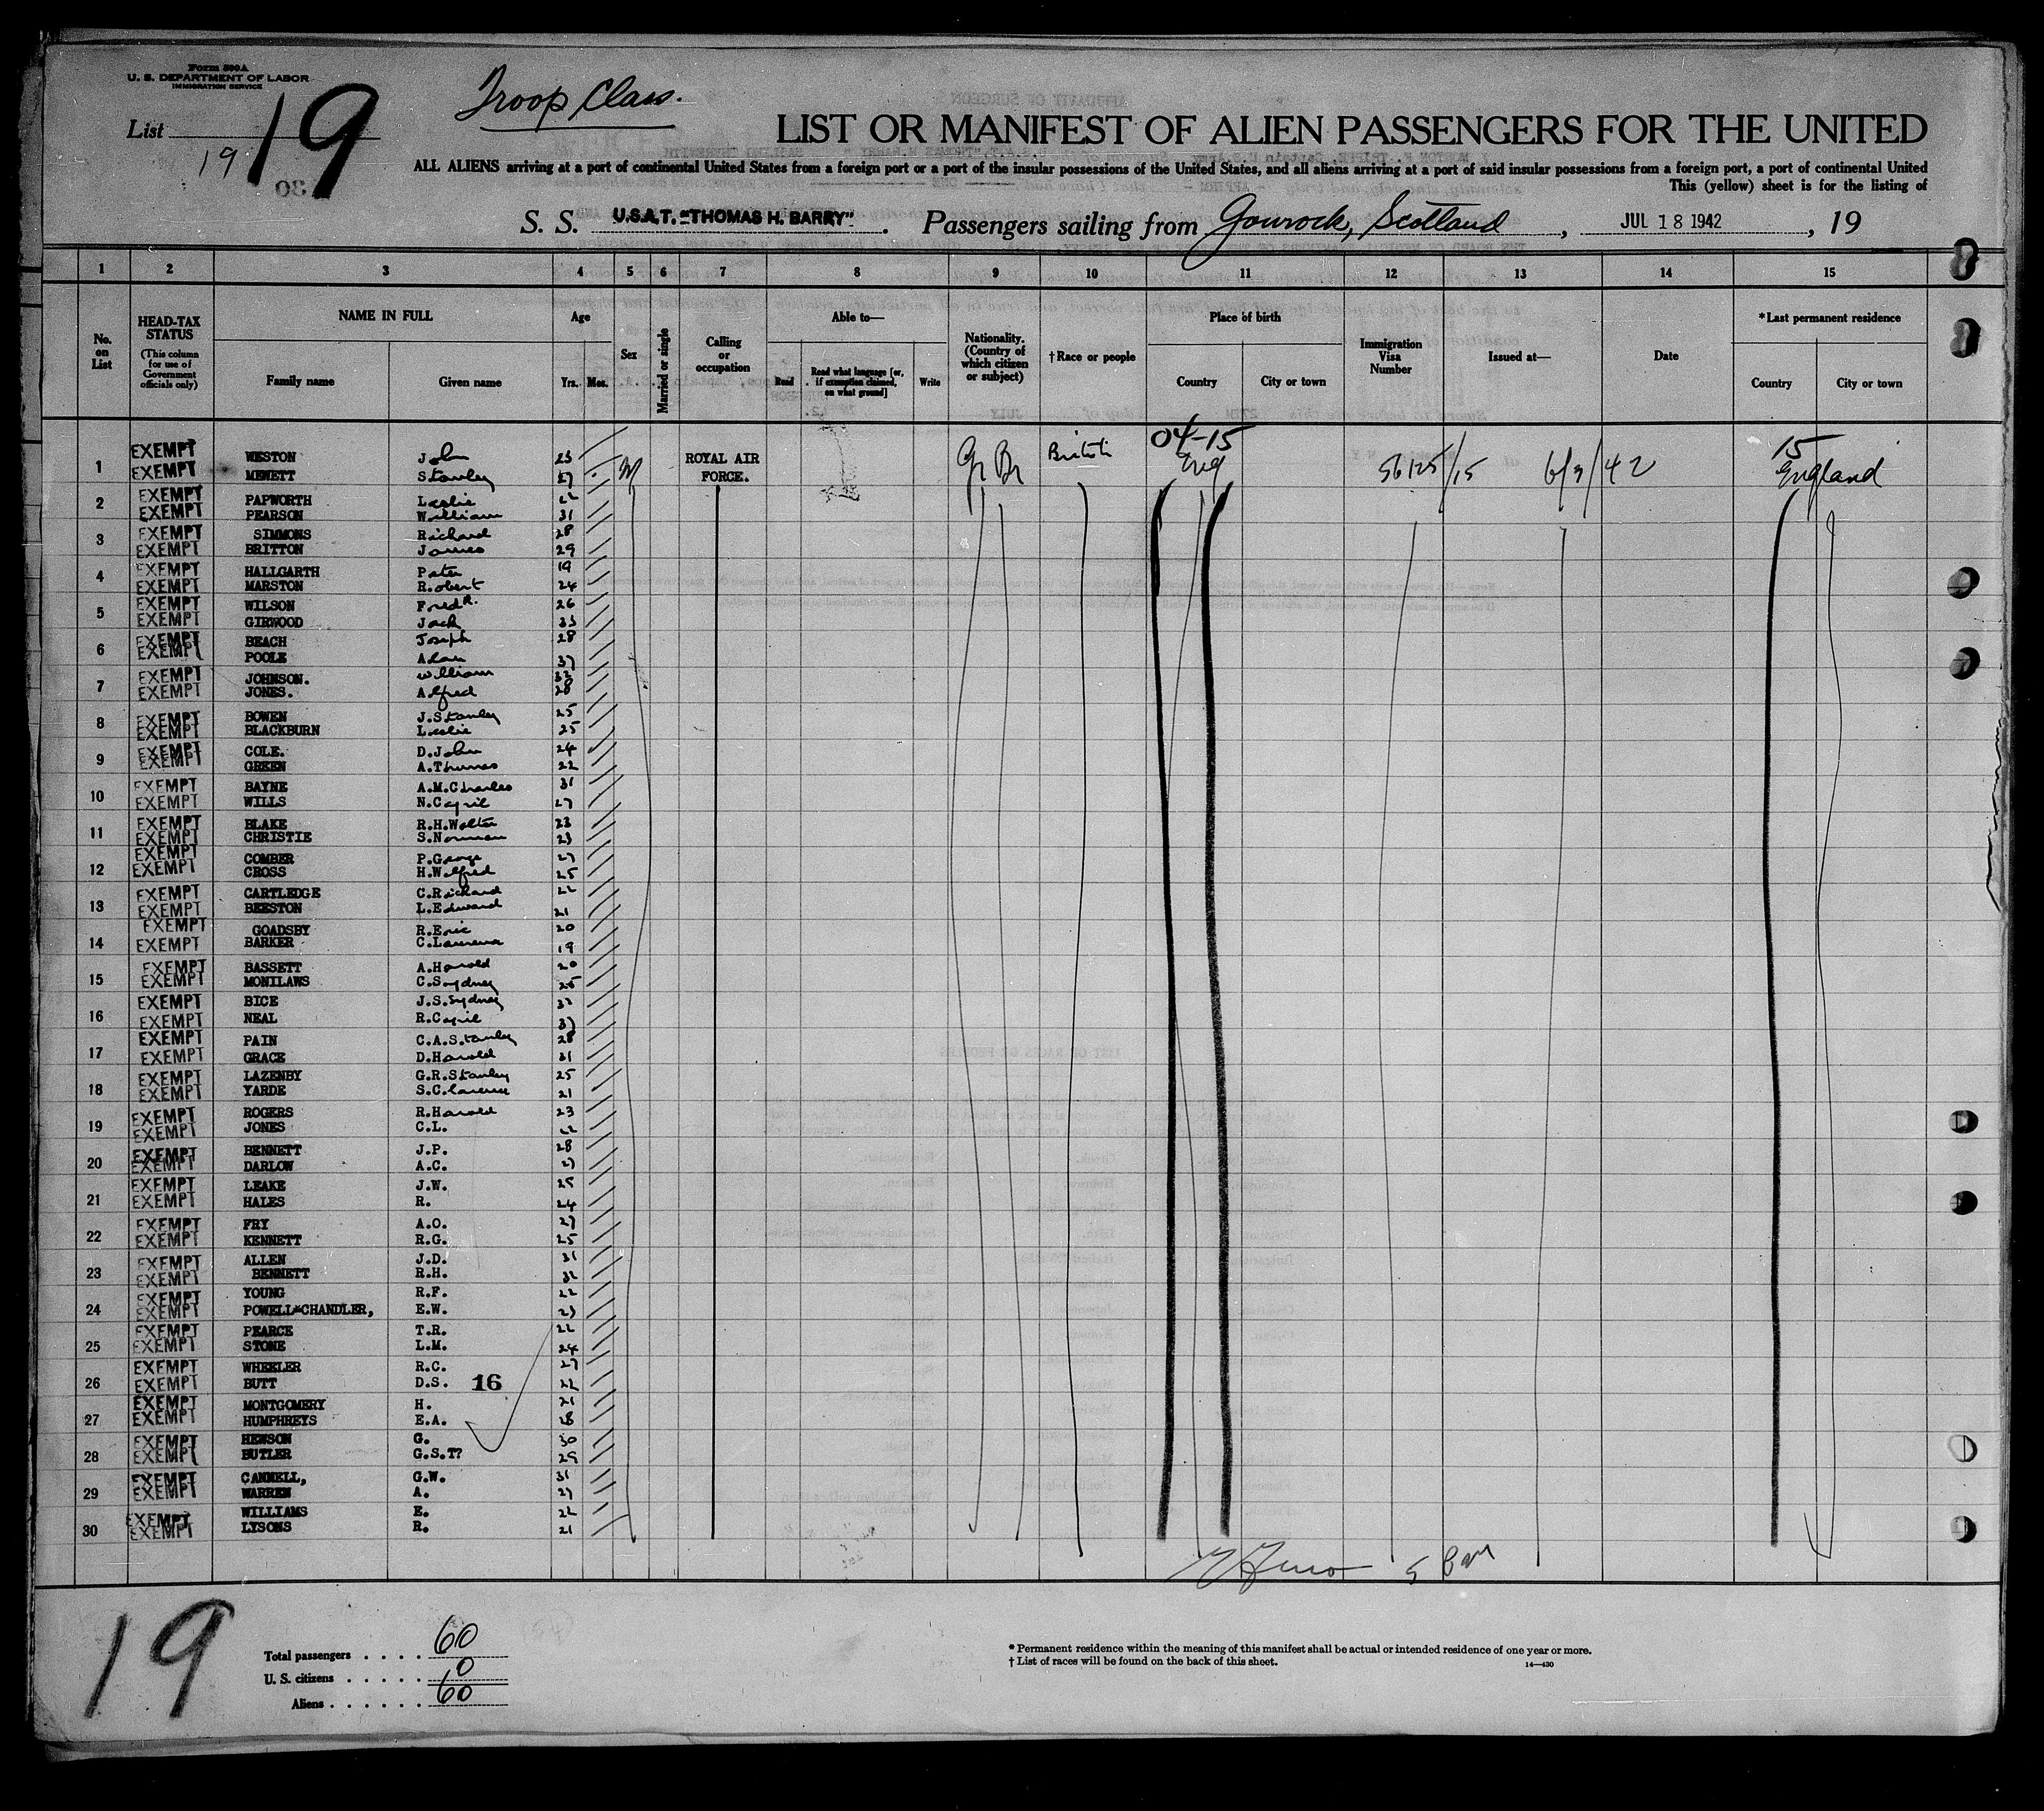 Form 500A
U. S. DEPARTMENT OF LABOR
IMMIGRATION SERVICE
List 19
19
Troop Class.
LIST OR MANIFEST OF ALIEN PASSENGERS FOR THE UNITED
ALL ALIENS arriving at a port of continental United States from a foreign port or a port of the insular possessions of the United States, and all aliens arriving at a port of said insular possessions from a foreign port, a port of continental United
This (yellow) sheet is for the listing of
S. S. U.S.A.T. "THOMAS H. BARRY". Passengers sailing from Gourock, Scotland, JUL 18 1942, 19
1 2 3 4 5 6 7 8 9 10 11 12 13 14 15
No. on List
HEAD-TAX STATUS (This column for use of Government officials only)
NAME IN FULL
Family name
Given name
Age
Yrs. Mos.
Sex
Married or single
Calling or occupation
Able to—
Read
Read what language [or, if exemption claimed, on what ground]
Write
Nationality. (Country of which citizen or subject)
† Race or people
Place of birth
Country
City or town
Immigration Visa Number
Issued at—
Date
* Last permanent residence
Country
City or town
04-15
15
1 EXEMPT WESTON John 23 M ROYAL AIR Gr Br British Eng 56125/15 6/9/42 England
EXEMPT MEWETT Stanley 27 FORCE.
2 EXEMPT PAPWORTH Leslie 22
EXEMPT PEARSON William 31
3 EXEMPT SIMMONS Richard 28
EXEMPT BRITTON James 29
4 EXEMPT HALLGARTH Peter 19
EXEMPT MARSTON Robert 24
5 EXEMPT WILSON Fredk. 26
EXEMPT GIRWOOD Jack 33
6 EXEMPT BEACH Joseph 28
EXEMPT POOLE Alan 37
7 EXEMPT JOHNSON. William 32
EXEMPT JONES. Alfred 28
8 EXEMPT BOWEN J.Stanley 25
EXEMPT BLACKBURN Leslie 25
9 EXEMPT COLE. D.John 24
EXEMPT GREEN A.Thomas 22
10 EXEMPT BAYNE A.M.Charles 31
EXEMPT WILLS N.Cyril 27
11 EXEMPT BLAKE R.H.Walter 23
EXEMPT CHRISTIE S.Norman 23
12 EXEMPT COMBER P.George 27
EXEMPT CROSS H.Wilfred 25
13 EXEMPT CARTLEDGE C.Richard 22
EXEMPT BEESTON L.Edward 21
14 EXEMPT GOADSBY R.Eric 20
EXEMPT BARKER C.Laurence 19
15 EXEMPT BASSETT A.Harold 20
EXEMPT MONILAWS C.Sydney 26
16 EXEMPT BICE J.S.Sydney 32
EXEMPT NEAL R.Cyril 37
17 EXEMPT PAIN C.A.Stanley 28
EXEMPT GRACE D.Harold 31
18 EXEMPT LAZENBY G.R.Stanley 25
EXEMPT YARDE S.Clarence 21
19 EXEMPT ROGERS R.Harold 23
EXEMPT JONES C.L. 22
20 EXEMPT BENNETT J.P. 28
EXEMPT DARLOW A.C. 27
21 EXEMPT LEAKE J.W. 25
EXEMPT HALES R. 24
22 EXEMPT FRY A.O. 27
EXEMPT KENNETT R.G. 25
23 EXEMPT ALLEN J.D. 31
EXEMPT BENNETT R.H. 32
24 EXEMPT YOUNG R.F. 22
EXEMPT POWELL*CHANDLER, E.W. 23
25 EXEMPT PEARCE T.R. 22
EXEMPT STONE L.M. 24
26 EXEMPT WHEELER R.C. 27
EXEMPT BUTT D.S. 16 22
27 EXEMPT MONTGOMERY H. 21
EXEMPT HUMPHREYS E.A. 28
28 EXEMPT HEWSON G. 30
EXEMPT BUTLER G.S.T? 29
29 EXEMPT CANNELL, G.W. 31
EXEMPT WARREN A. 27
30 EXEMPT WILLIAMS E. 22
EXEMPT LYSONS R. 21
19
Total passengers . . . . 60
U. S. citizens . . . . . 0
Aliens . . . . . . 60
* Permanent residence within the meaning of this manifest shall be actual or intended residence of one year or more.
† List of races will be found on the back of this sheet.
14—430